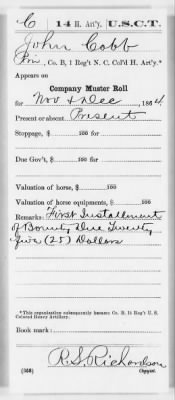 C 14 H. Art'y. U.S.C.T.
John Cobb
Priv., Co. B, 1 Reg't N. C. Col'd H. Art'y.*
Appears on
Company Muster Roll
for Nov & Dec, 1864.
Present or absent Present
Stoppage, $ 100 for
Due Gov't, $ 100 for
Valuation of horse, $ 100
Valuation of horse equipments, $ 100
Remarks: First Installment
of Bounty Due Twenty
five (25) Dollars
*This organization subsequently became Co. B, 14 Reg't U. S.
Colored Heavy Artillery.
Book mark:
R. S. Richardson
(358) Copyist.